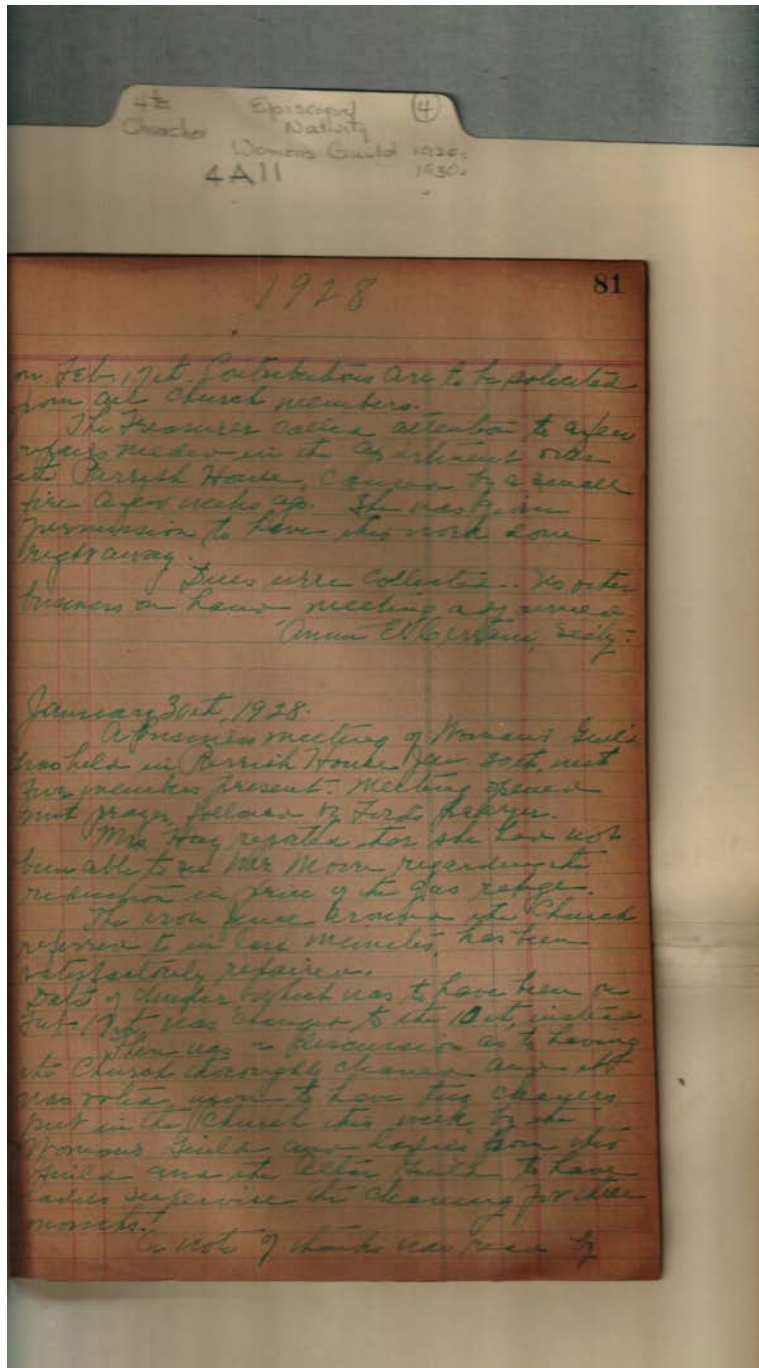 4th Episcopal ④
Churches Nativity
Womens Guild 1920s
4A11 1930s
1928
81
on Feb. 17th. Contributions are to be solicited
from all Church members.
The Treasurer called attention to a few
repairs needed in the apartment over
the Parrish House, caused by a small
fire a few weeks ago. She was given
permission to have this work done
right away.
Dues were collected. No other
business on hand meeting adjourned.
Secty.
January 30th, 1928.
A business meeting of Womans Guild
was held in Parrish House Jan. 30th, with
five members present. Meeting opened
with prayer, followed by Lords prayer.
Mrs Hay reported that she had not
been able to see Mr Moore regarding the
reduction in price of the gas range.
The iron fence around the Church
referred to in last minutes, has been
satisfactorily repaired.
Date of dinner which was to have been on
Feb. 17th, was changed to the 10th, instead
There was a discussion as to having
the Church thoroughly cleaned and it
was voted upon to have two cleaners
put in the Church this week by the
Womans Guild and ladies from this
Guild and the Altar Guild to have
ladies supervise the cleaning for three
months.
A note of thanks was read by